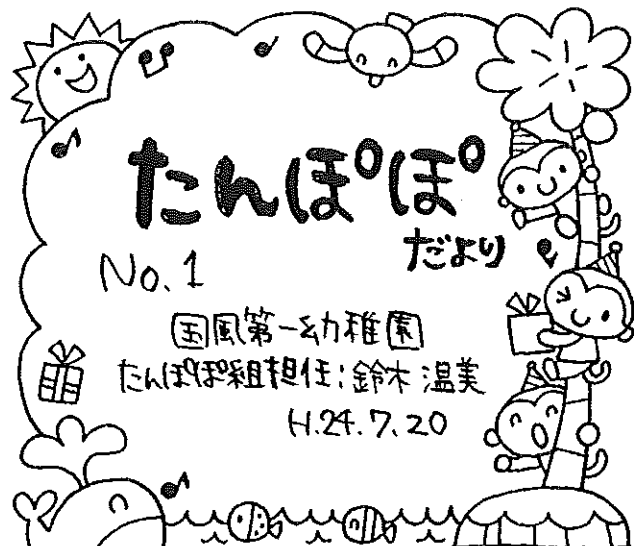 たんぽぽ
だより
No.1
国風第一幼稚園
たんぽぽ組担任:鈴木温美
H.24.7.20